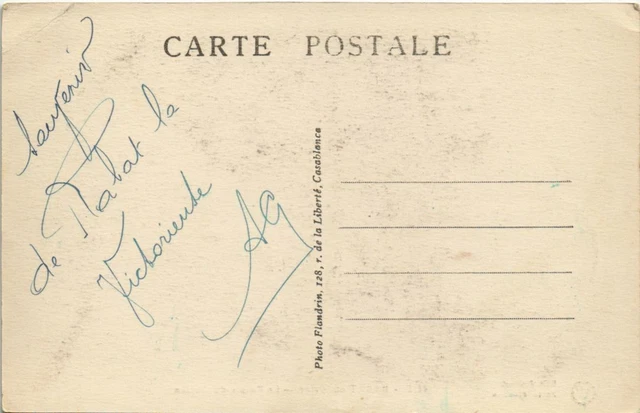 CARTE POSTALE
Souvenir
de Rabat la
Victorieuse
AG
Photo Flandrin, 128, r. de la Liberté, Casablanca